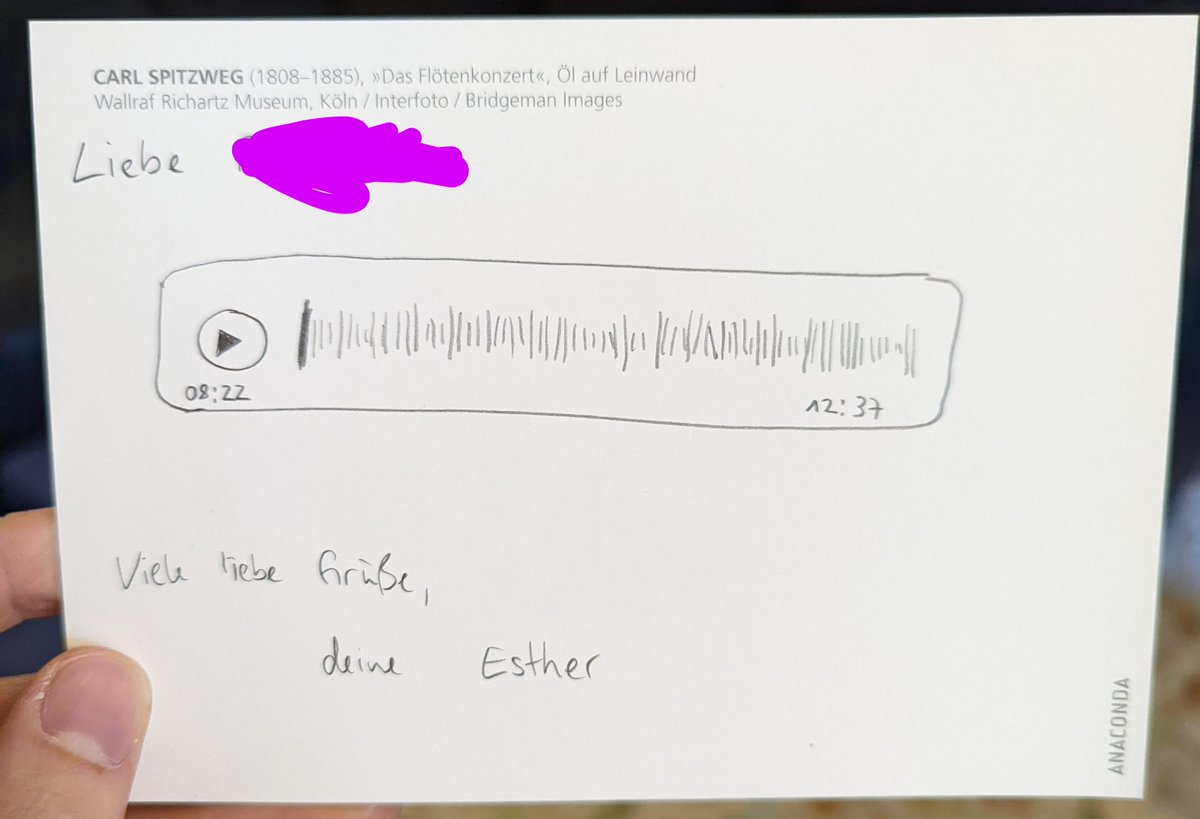 CARL SPITZWEG (1808–1885), »Das Flötenkonzert«, Öl auf Leinwand
Wallraf Richartz Museum, Köln / Interfoto / Bridgeman Images
Liebe
08:22
12:37
Viele liebe Grüße,
deine Esther
ANACONDA